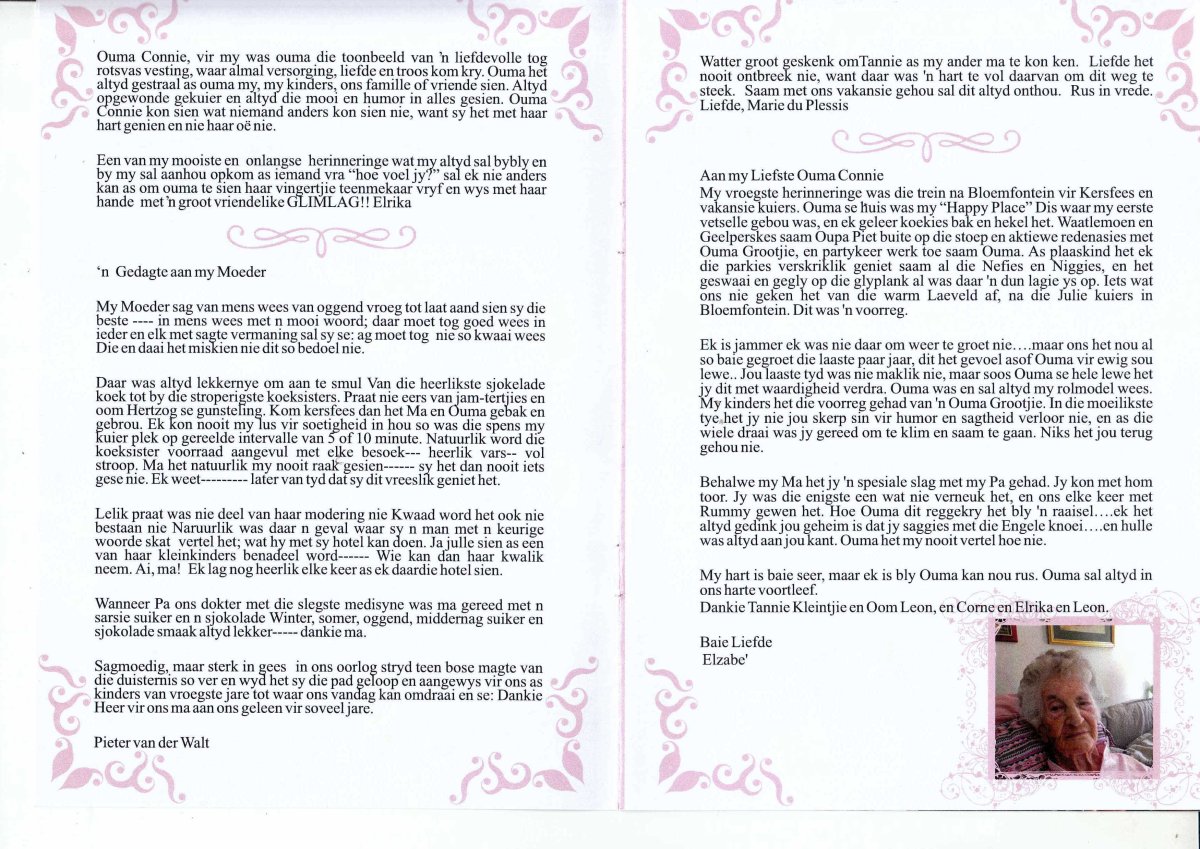 Ouma Connie, vir my was ouma die toonbeeld van 'n liefdevolle tog
rotsvas vesting, waar almal versorging, liefde en troos kom kry. Ouma het
altyd gestraal as ouma my, my kinders, ons famille of vriende sien. Altyd
opgewonde gekuier en altyd die mooi en humor in alles gesien. Ouma
Connie kon sien wat niemand anders kon sien nie, want sy het met haar
hart genien en nie haar oë nie.
Een van my mooiste en onlangse herinneringe wat my altyd sal bybly en
by my sal aanhou opkom as iemand vra “hoe voel jy?” sal ek nie anders
kan as om ouma te sien haar vingertjie teenmekaar vryf en wys met haar
hande met 'n groot vriendelike GLIMLAG!! Elrika
‘n Gedagte aan my Moeder
My Moeder sag van mens wees van oggend vroeg tot laat aand sien sy die
beste ---- in mens wees met n mooi woord; daar moet tog goed wees in
ieder en elk met sagte vermaning sal sy se: ag moet tog nie so kwaai wees
Die en daai het miskien nie dit so bedoel nie.
Daar was altyd lekkernye om aan te smul Van die heerlikste sjokelade
koek tot by die stroperigste koeksisters. Praat nie eers van jam-tertjies en
oom Hertzog se gunsteling. Kom kersfees dan het Ma en Ouma gebak en
gebrou. Ek kon nooit my lus vir soetigheid in hou so was die spens my
kuier plek op gereelde intervalle van 5 of 10 minute. Natuurlik word die
koeksister voorraad aangevul met elke besoek--- heerlik vars-- vol
stroop. Ma het natuurlik my nooit raak gesien------ sy het dan nooit iets
gese nie. Ek weet--------- later van tyd dat sy dit vreeslik geniet het.
Lelik praat was nie deel van haar modering nie Kwaad word het ook nie
bestaan nie Naruurlik was daar n geval waar sy n man met n keurige
woorde skat vertel het; wat hy met sy hotel kan doen. Ja julle sien as een
van haar kleinkinders benadeel word------ Wie kan dan haar kwalik
neem. Ai, ma! Ek lag nog heerlik elke keer as ek daardie hotel sien.
Wanneer Pa ons dokter met die slegste medisyne was ma gereed met n
sarsie suiker en n sjokolade Winter, somer, oggend, middernag suiker en
sjokolade smaak altyd lekker----- dankie ma.
Sagmoedig, maar sterk in gees in ons oorlog stryd teen bose magte van
die duisternis so ver en wyd het sy die pad geloop en aangewys vir ons as
kinders van vroegste jare tot waar ons vandag kan omdraai en se: Dankie
Heer vir ons ma aan ons geleen vir soveel jare.
Pieter van der Walt
Watter groot geskenk omTannie as my ander ma te kon ken. Liefde het
nooit ontbreek nie, want daar was 'n hart te vol daarvan om dit weg te
steek. Saam met ons vakansie gehou sal dit altyd onthou. Rus in vrede.
Liefde, Marie du Plessis
Aan my Liefste Ouma Connie
My vroegste herinneringe was die trein na Bloemfontein vir Kersfees en
vakansie kuiers. Ouma se huis was my “Happy Place” Dis waar my eerste
vetselle gebou was, en ek geleer koekies bak en hekel het. Waatlemoen en
Geelperskes saam Oupa Piet buite op die stoep en aktiewe redenasies met
Ouma Grootjie, en partykeer werk toe saam Ouma. As plaaskind het ek
die parkies verskriklik geniet saam al die Nefies en Niggies, en het
geswaai en gegly op die glyplank al was daar 'n dun lagie ys op. Iets wat
ons nie geken het van die warm Laeveld af, na die Julie kuiers in
Bloemfontein. Dit was 'n voorreg.
Ek is jammer ek was nie daar om weer te groet nie….maar ons het nou al
so baie gegroet die laaste paar jaar, dit het gevoel asof Ouma vir ewig sou
lewe.. Jou laaste tyd was nie maklik nie, maar soos Ouma se hele lewe het
jy dit met waardigheid verdra. Ouma was en sal altyd my rolmodel wees.
My kinders het die voorreg gehad van 'n Ouma Grootjie. In die moeilikste
tye het jy nie jou skerp sin vir humor en sagtheid verloor nie, en as die
wiele draai was jy gereed om te klim en saam te gaan. Niks het jou terug
gehou nie.
Behalwe my Ma het jy 'n spesiale slag met my Pa gehad. Jy kon met hom
toor. Jy was die enigste een wat nie verneuk het, en ons elke keer met
Rummy gewen het. Hoe Ouma dit reggekry het bly 'n raaisel….ek het
altyd gedink jou geheim is dat jy saggies met die Engele knoei….en hulle
was altyd aan jou kant. Ouma het my nooit vertel hoe nie.
My hart is baie seer, maar ek is bly Ouma kan nou rus. Ouma sal altyd in
ons harte voortleef.
Dankie Tannie Kleintjie en Oom Leon, en Corne en Elrika en Leon.
Baie Liefde
Elzabe'